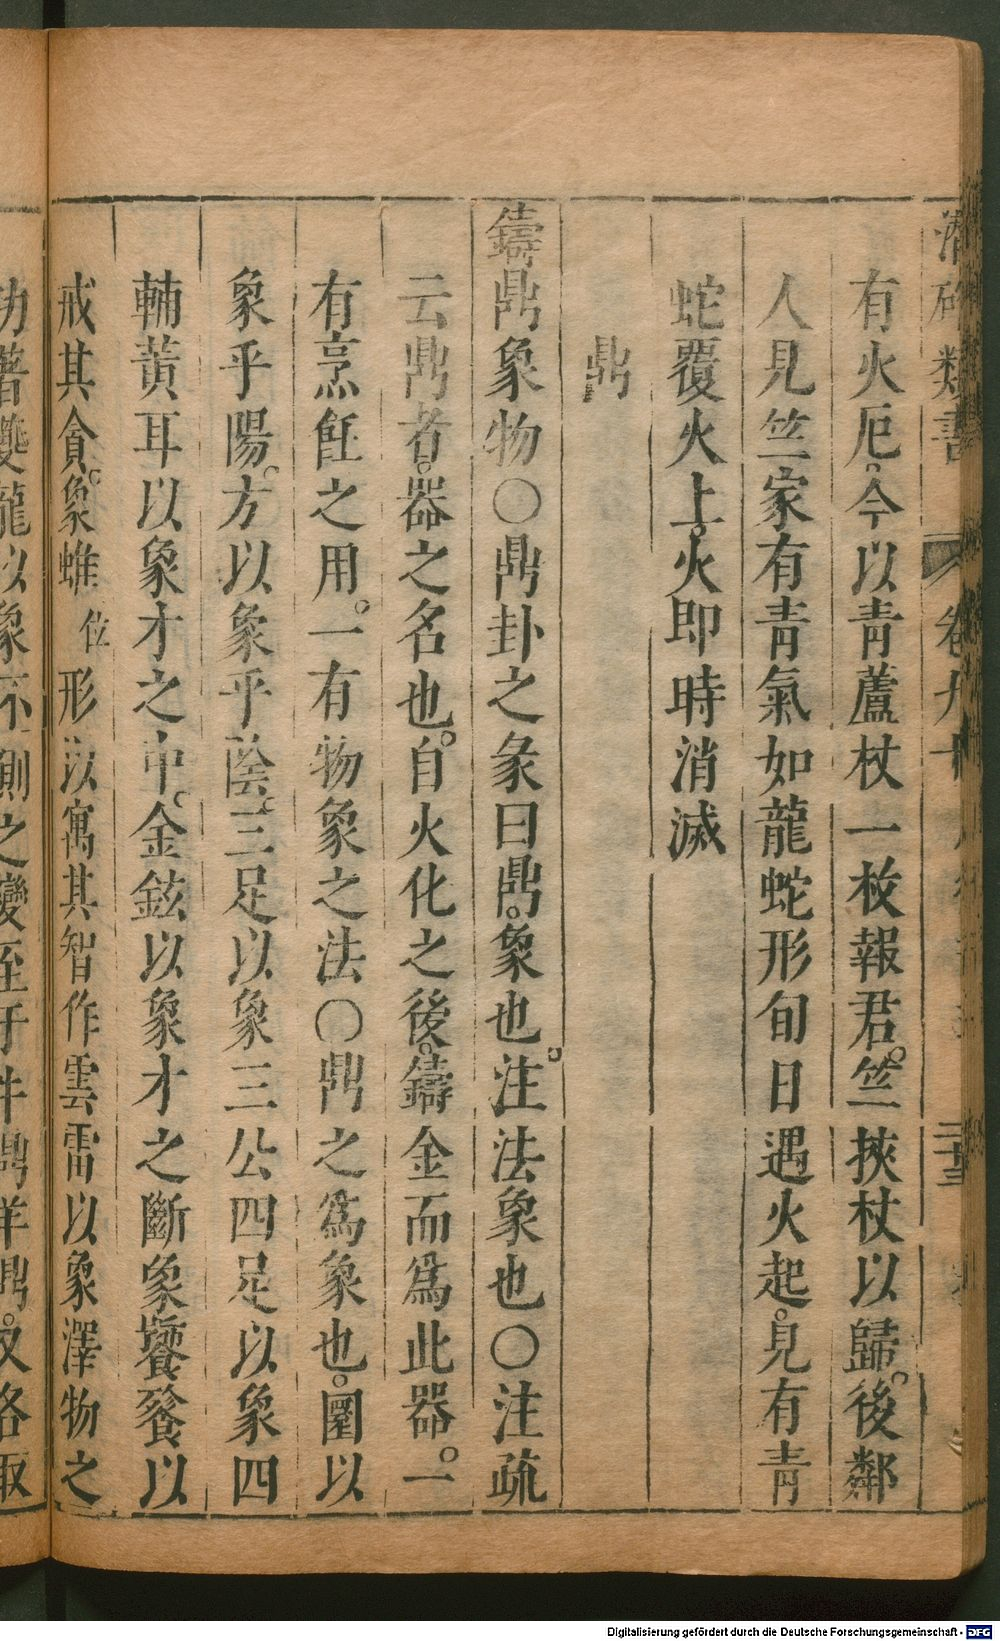 潛確類書 卷九十 二十三
有火厄今以青蘆杖一枚報君竺挾杖以歸後鄰
人見竺家有青氣如龍蛇形旬日遇火起見有青
蛇覆火上火即時消滅
鼎
鑄鼎象物〇鼎卦之彖曰鼎象也注法象也〇注疏
云鼎者器之名也自火化之後鑄金而為此器一
有烹飪之用一有物象之法〇鼎之為象也圜以
象乎陽方以象乎陰三足以象三公四足以象四
輔黃耳以象才之中金鉉以象才之斷象饕餮以
戒其貪象蜼位形以寓其智作雲雷以象澤物之
功著夔龍以象不測之變至于牛鼎羊鼎又各取
Digitalisierung gefördert durch die Deutsche Forschungsgemeinschaft - DFG